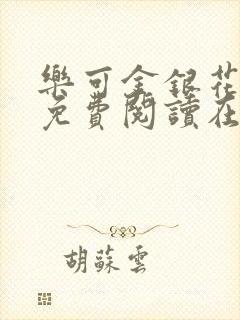 樂可金銀花
免費閱讀在
胡蘇雲